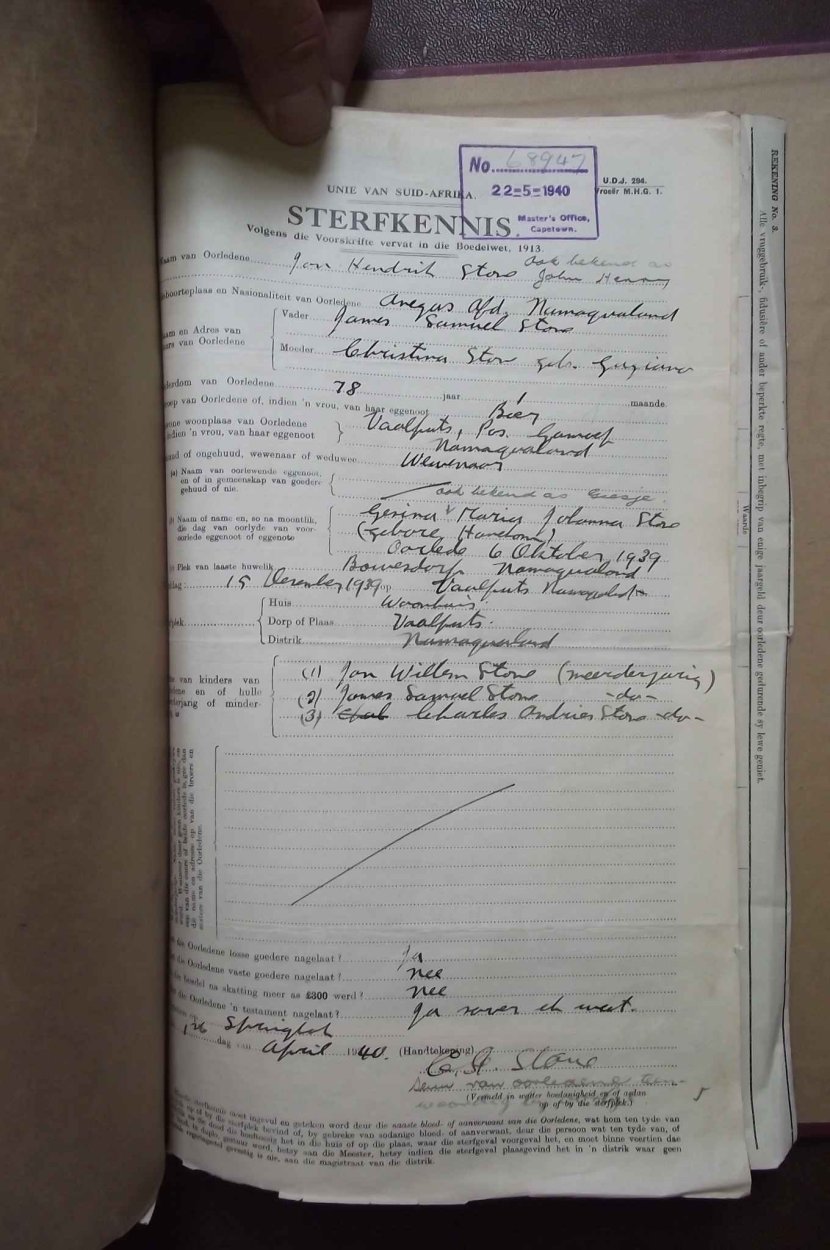 No. 68947
22-5-1940
Master's Office,
Capetown.
U.D.J. 294.
Vroeër M.H.G. 1.
UNIE VAN SUID-AFRIKA.
STERFKENNIS.
Volgens die Voorskrifte vervat in die Boedelwet, 1913.
Naam van Oorledene Jan Hendrik Stone ook bekend as
John Henry
Geboorteplaas en Nasionaliteit van Oorledene Anegas Afd. Namaqualand
Vader James Samuel Stone
Naam en Adres van
Ouers van Oorledene
Moeder Christina Stone geb.
Ouderdom van Oorledene 78 jaar 1 maande.
Beroep van Oorledene of, indien 'n vrou, van haar eggenoot Boer
woonplaas van Oorledene Vaalputs, Pos. Gamoep
indien 'n vrou, van haar eggenoot Namaqualand
Getroud of ongehuud, wewenaar of weduwee Wewenaar
(a) Naam van oorlewende eggenoot,
en of in gemeenskap van goedere
gehuud of nie.
ook bekend as Giesje.
(b) Naam of name en, so na moontlik, Gesina Maria Johanna Stone
die dag van oorlyde van voor- (gebore
oorlede eggenoot of eggenote Oorlede 6 Oktober 1939
Plek van laaste huwelik Bowesdorp Namaqualand
15 Desember 1939 op Vaalputs
Huis Woonhuis
Dorp of Plaas Vaalputs.
Distrik Namaqualand
van kinders van (1) Jan Willem Stone (meerderjarig)
en of hulle (2) James Samuel Stone -do-
of minder- (3) Charles Andries Stone -do-
die Oorledene losse goedere nagelaat? Ja
die Oorledene vaste goedere nagelaat? nee
boedel na skatting meer as £300 werd? nee
die Oorledene 'n testament nagelaat? Ja sover ek weet.
Springbok
dag van April 1940. (Handtekening) C. A. Stone
Seun van oorledene
(Vermeld in watter hoedanigheid en of aldan
op of by die sterfplek.)
5
sterfkennis moet ingevul en geteken word deur die naaste bloed- of aanverwant van die Oorledene, wat hom ten tyde van
die sterfplek bevind of, by gebreke van sodanige bloed- of aanverwant, deur die persoon wat ten tyde van, of
die dood die in die huis of op die plaas, waar die sterfgeval voorgeval het, en moet binne veertien dae
word, hetsy aan die Meester, hetsy indien die sterfgeval plaasgevind het in 'n distrik waar geen
gevestig is nie, aan die magistraat van die distrik.
REKENING No. 3.
Alle vruggebruik-, fidusiêre of ander beperkte regte, met inbegrip van enige jaargeld deur oorledene gedurende sy lewe geniet.
Waarde